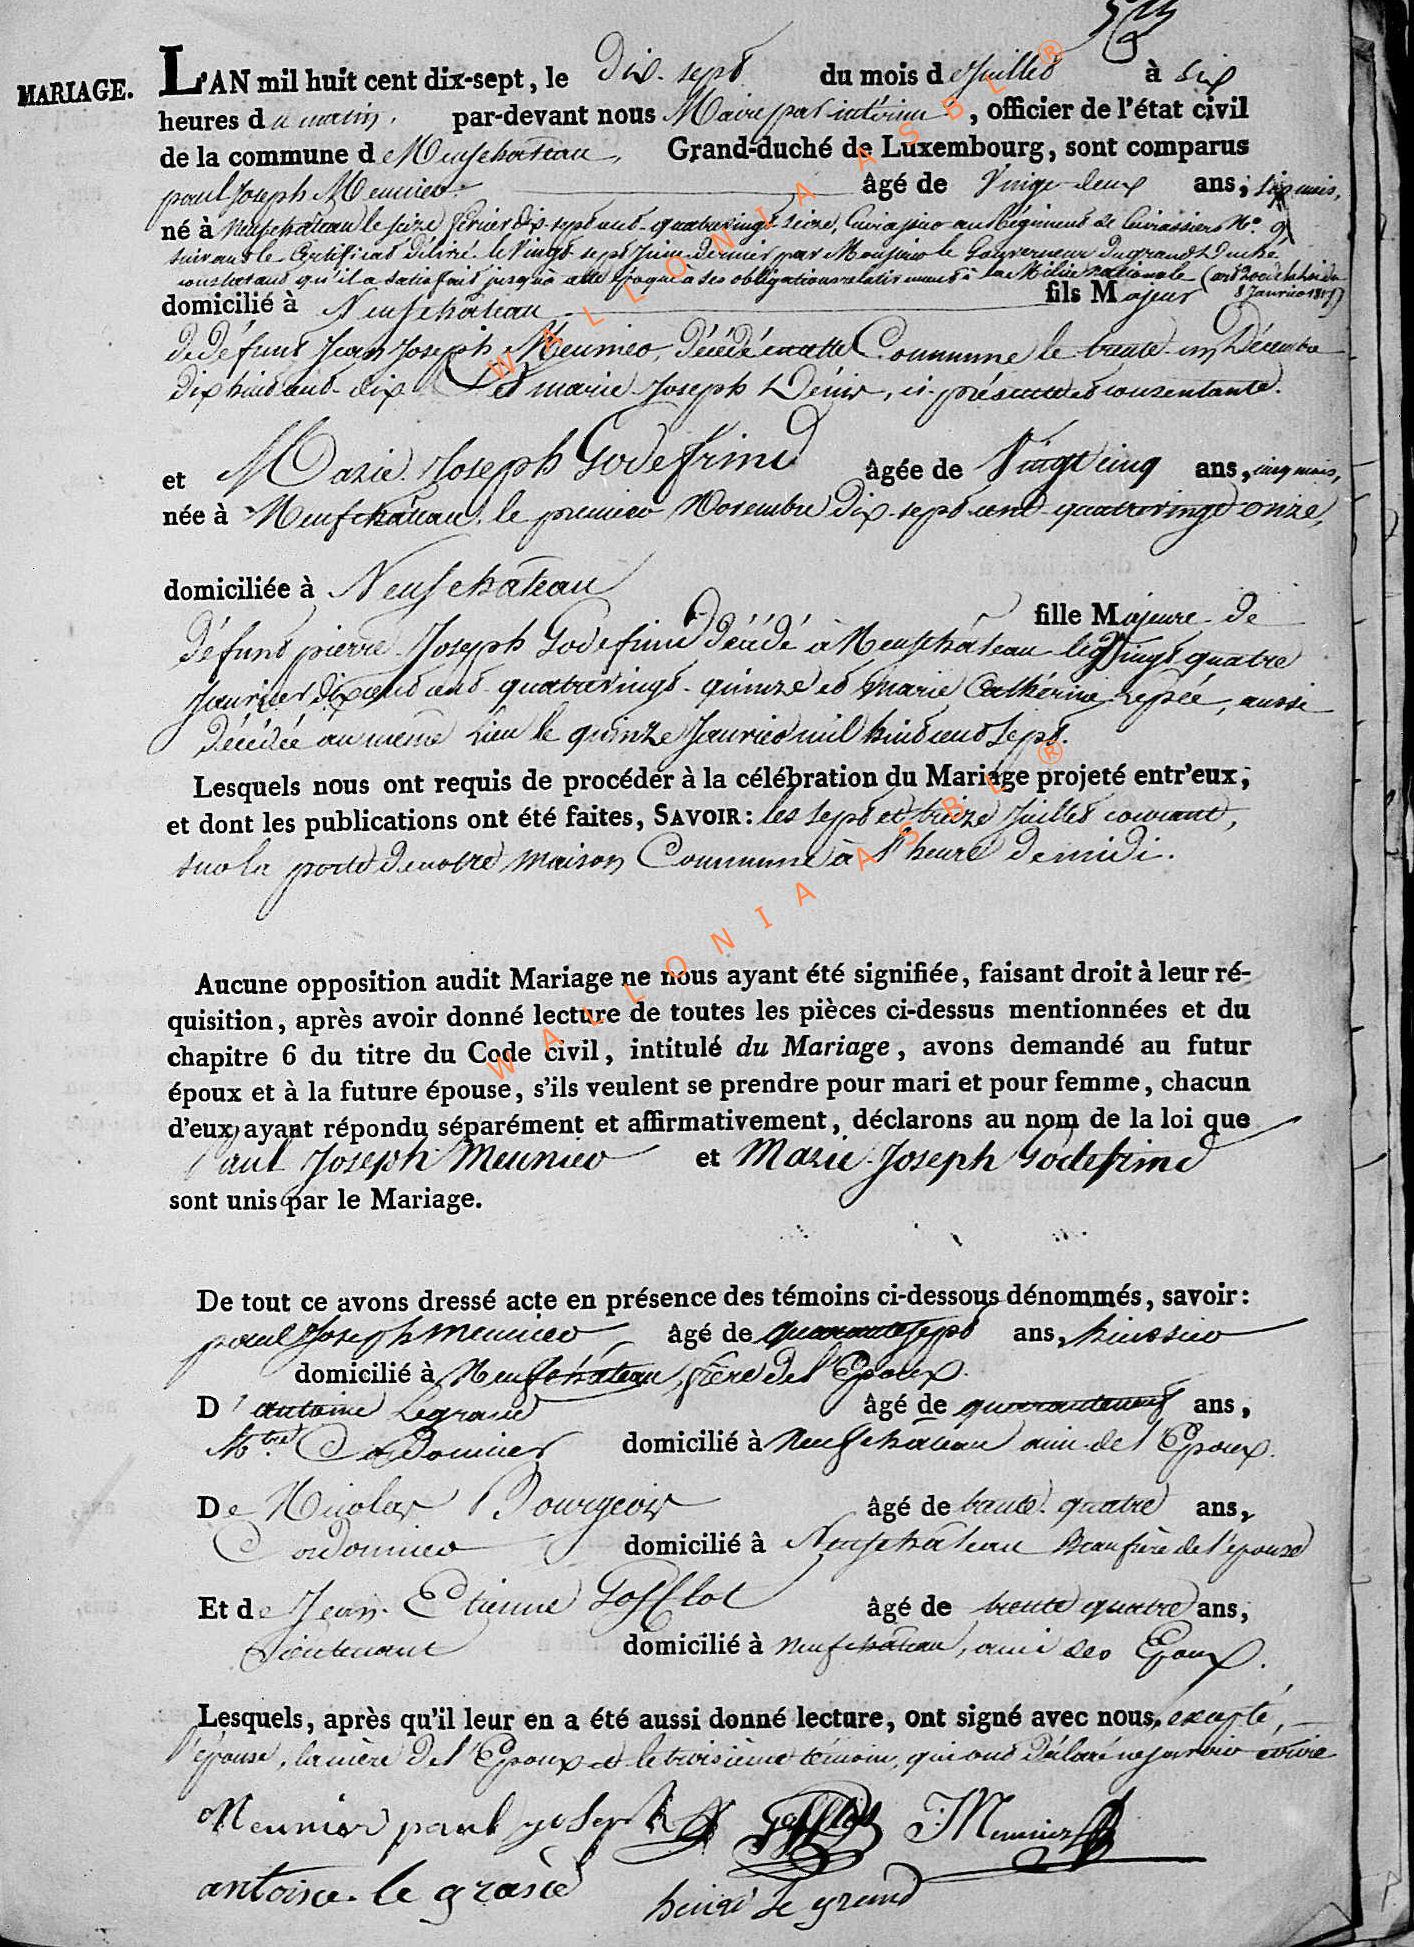 MARIAGE.
L'AN mil huit cent dix-sept, le dix-sept du mois de Juillet à six
heures du matin, par-devant nous Maire par intérim, officier de l'état civil
de la commune de Neufchâteau, Grand-duché de Luxembourg, sont comparus
paul Joseph Meunier âgé de Vingt-deux ans,
né à Neufchâteau le seize février dix-sept cent quatrevingt-seize, Cuirassier au Régiment de Cuirassiers No. 9,
suivant le Certificat délivré le Vingt-sept Juin dernier par Monsieur le Gouverneur du grand Duché
constatant qu'il a satisfait jusqu'à cette époque à ses obligations relativement à la Milice nationale
8 Janvier 1817)
domicilié à Neufchâteau fils Majeur
de défunt Jean Joseph Meunier, décédé en cette Commune le trente-un Décembre
dix huit cent dix et marie Joseph Denis, ci-présente et consentante.
et Marie Joseph Godefrind âgée de Vingt cinq ans, cinq mois,
née à Neufchâteau, le premier Novembre dix-sept cent quatrevingt onze,
domiciliée à Neufchâteau
fille Majeure de
défunt pierre Joseph Godefrind décédé à Neufchâteau le Vingt quatre
Janvier dix sept cent quatrevingt-quinze et marie Catherine aussi
décédée au même Lieu le quinze Janvier mil huit cent sept.
Lesquels nous ont requis de procéder à la célébration du Mariage projeté entr'eux,
et dont les publications ont été faites, SAVOIR: les sept et treize Juillet courant,
sur la porte de notre maison Commune à l'heure de midi.
Aucune opposition audit Mariage ne nous ayant été signifiée, faisant droit à leur ré-
quisition, après avoir donné lecture de toutes les pièces ci-dessus mentionnées et du
chapitre 6 du titre du Code civil, intitulé du Mariage, avons demandé au futur
époux et à la future épouse, s'ils veulent se prendre pour mari et pour femme, chacun
d'eux ayant répondu séparément et affirmativement, déclarons au nom de la loi que
Paul Joseph Meunier et Marie-Joseph Godefrind
sont unis par le Mariage.
De tout ce avons dressé acte en présence des témoins ci-dessous dénommés, savoir:
paul Joseph meunier âgé de quarante sept ans, huissier
domicilié à Neufchâteau, frère de l'Epoux.
D'antoine Legrand âgé de quarante neuf ans,
Mtre Cordonnier domicilié à Neufchâteau ami de l'Epoux.
De Nicolas Bourgeois âgé de trente-quatre ans,
Cordonnier domicilié à Neufchâteau Beaufrère de l'épouse
Et de Jean-Etienne Gofflot âgé de trente quatre ans,
Lieutenant domicilié à neufchâteau, ami des Epoux.
Lesquels, après qu'il leur en a été aussi donné lecture, ont signé avec nous, excepté,
l'épouse, la mère de l'Epoux et le troisième témoin, qui ont déclaré ne savoir écrire
Meunier paul joseph Gofflot J. Meunier
antoine le grand henri Le grand
WALLONIA ASBL ®
WALLONIA ASBL ®